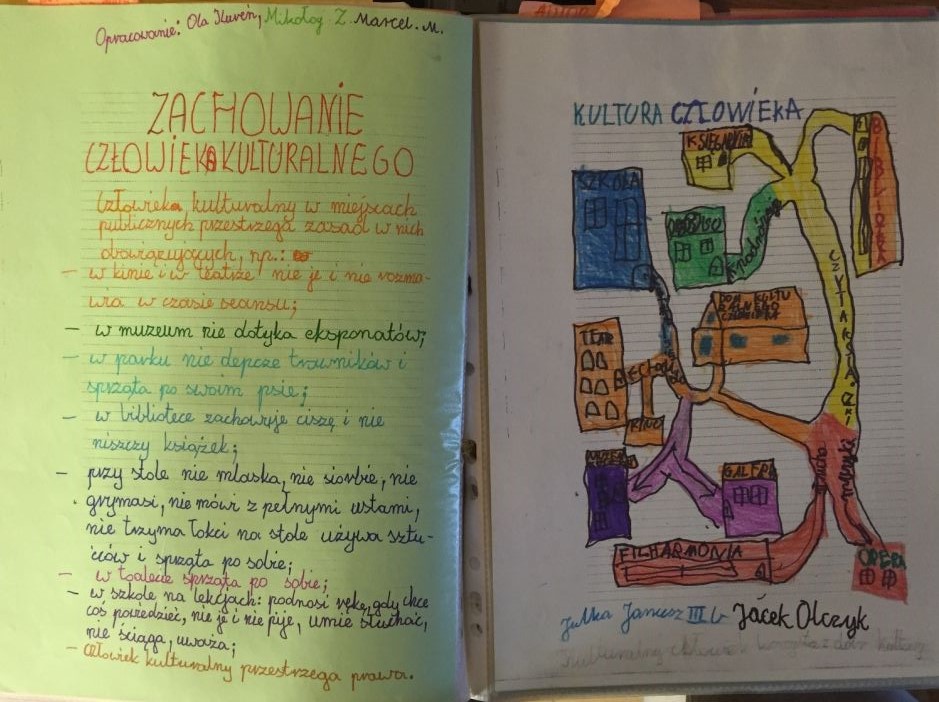 Opracowanie: Ola Kureń, Mikołaj Z. Marcel. M.
ZACHOWANIE
CZŁOWIEKA KULTURALNEGO
Człowieka kulturalny w miejscach
publicznych przestrzega zasad w nich
obowiązujących, np.:
– w kinie i w teatrze nie je i nie rozma-
wia w czasie seansu;
– w muzeum nie dotyka eksponatów;
– w parku nie depcze trawników i
sprząta po swoim psie;
– w bibliotece zachowuje ciszę i nie
niszczy książek;
– przy stole nie mlaska, nie siorbie, nie
grymasi, nie mówi z pełnymi ustami,
nie trzyma łokci na stole używa sztu-
ćców i sprząta po sobie;
– w toalecie sprząta po sobie;
– w szkole na lekcjach: podnosi rękę, gdy chce
coś powiedzieć, nie je i nie pije, umie słuchać,
nie ściąga, uważa;
– Człowiek kulturalny przestrzega prawa.
KULTURA CZŁOWIEKA
KSIĘGARNIA
BIBLIOTEKA
SZKOŁA
CZYTA KSIĄŻKI
DOM KULTU
TEATR
KINO
GALERIA
FILHARMONIA
OPERA
słucha muzyki
Julka Janusz III b Jacek Olczyk